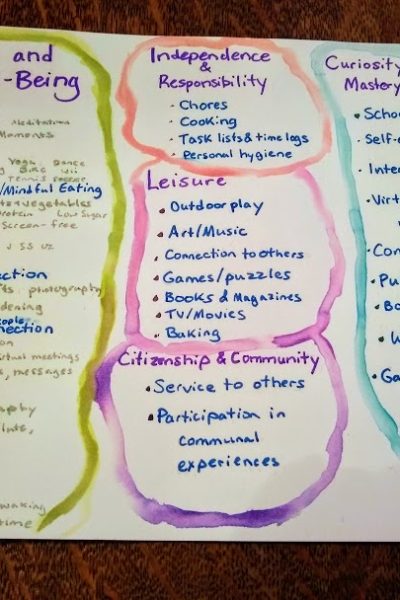 and
-Being
Meditation
Moments
Yoga, Dance
Wii
/Mindful Eating
vegetables
Protein Low Sugar
Screen-free
photography
virtual meetings
messages
time
Independence
&
Responsibility
- Chores
- Cooking
- Task lists & time logs
- Personal hygiene
Leisure
• Outdoor play
• Art/Music
• Connection to others
• Games/puzzles
• Books & Magazines
• TV/Movies
• Baking
Citizenship & Community
• Service to others
• Participation in
communal
experiences
Curiosity
Mastery
• Scho
• Self-e
• Inte
• Virt
• Con
• Pu
• Bo
• W
• Ga